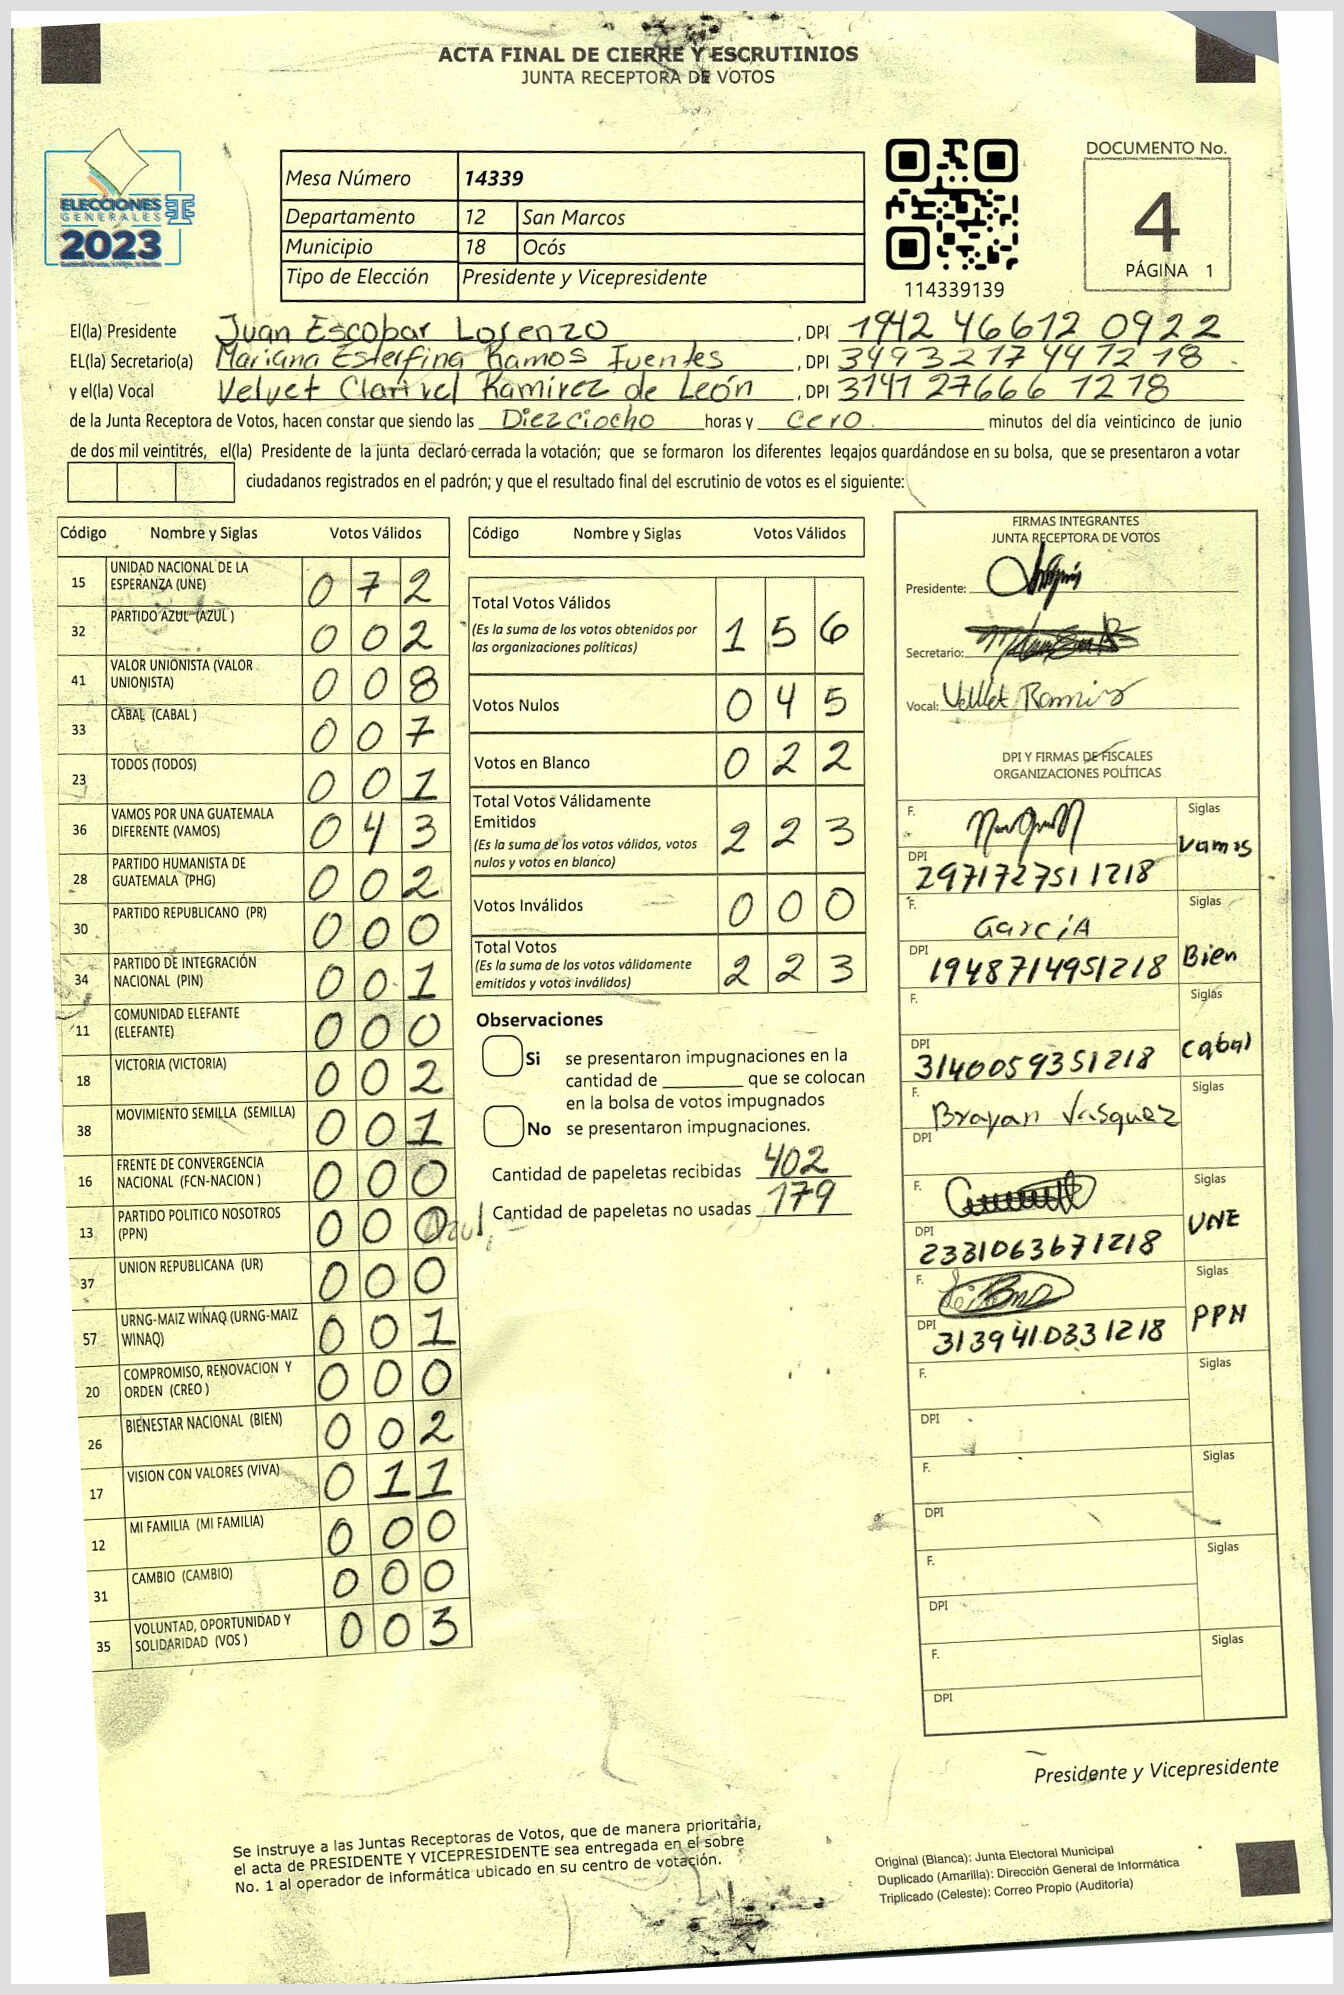 ACTA FINAL DE CIERRE Y ESCRUTINIOS
JUNTA RECEPTORA DE VOTOS
ELECCIONES
GENERALES
2023
Mesa Número 14339
Departamento 12 San Marcos
Municipio 18 Ocós
Tipo de Elección Presidente y Vicepresidente
114339139
DOCUMENTO No.
4
PÁGINA 1
El(la) Presidente Juan Escobar Lorenzo, DPI 1942 46612 0922
EL(la) Secretario(a) Mariana Esterfina Ramos Fuentes, DPI 3493217441218
y el(la) Vocal Velvet Clarivel Ramirez de León, DPI 3141 27666 1218
de la Junta Receptora de Votos, hacen constar que siendo las Diezciocho horas y cero minutos del día veinticinco de junio
de dos mil veintitrés, el(la) Presidente de la junta declaró cerrada la votación; que se formaron los diferentes legajos guardándose en su bolsa, que se presentaron a votar
ciudadanos registrados en el padrón; y que el resultado final del escrutinio de votos es el siguiente:
Código Nombre y Siglas Votos Válidos
15 UNIDAD NACIONAL DE LA ESPERANZA (UNE) 072
32 PARTIDO AZUL (AZUL ) 002
41 VALOR UNIONISTA (VALOR UNIONISTA) 008
33 CABAL (CABAL ) 007
23 TODOS (TODOS) 001
36 VAMOS POR UNA GUATEMALA DIFERENTE (VAMOS) 043
28 PARTIDO HUMANISTA DE GUATEMALA (PHG) 002
30 PARTIDO REPUBLICANO (PR) 000
34 PARTIDO DE INTEGRACIÓN NACIONAL (PIN) 001
11 COMUNIDAD ELEFANTE (ELEFANTE) 000
18 VICTORIA (VICTORIA) 002
38 MOVIMIENTO SEMILLA (SEMILLA) 001
16 FRENTE DE CONVERGENCIA NACIONAL (FCN-NACION ) 000
13 PARTIDO POLITICO NOSOTROS (PPN) 000
Azul
37 UNION REPUBLICANA (UR) 000
57 URNG-MAIZ WINAQ (URNG-MAIZ WINAQ) 001
20 COMPROMISO, RENOVACION Y ORDEN (CREO ) 000
26 BIENESTAR NACIONAL (BIEN) 002
17 VISION CON VALORES (VIVA) 011
12 MI FAMILIA (MI FAMILIA) 000
31 CAMBIO (CAMBIO) 000
35 VOLUNTAD, OPORTUNIDAD Y SOLIDARIDAD (VOS ) 003
Código Nombre y Siglas Votos Válidos
Total Votos Válidos 156
(Es la suma de los votos obtenidos por
las organizaciones políticas)
Votos Nulos 045
Votos en Blanco 022
Total Votos Válidamente
Emitidos 223
(Es la suma de los votos válidos, votos
nulos y votos en blanco)
Votos Inválidos 000
Total Votos 223
(Es la suma de los votos válidamente
emitidos y votos inválidos)
Observaciones
Si se presentaron impugnaciones en la
cantidad de ________ que se colocan
en la bolsa de votos impugnados
No se presentaron impugnaciones.
Cantidad de papeletas recibidas 402
Cantidad de papeletas no usadas 179
FIRMAS INTEGRANTES
JUNTA RECEPTORA DE VOTOS
Presidente:
Secretario:
Vocal: Velvet Ramirez
DPI Y FIRMAS DE FISCALES
ORGANIZACIONES POLÍTICAS
F. Siglas
Vamos
DPI 2971727511218
F. García Siglas
Bien
DPI 1948714951218
F. Siglas
Cabal
DPI 3140059351218
F. Brayan Vasquez Siglas
DPI
F. Siglas
UNE
DPI 2331063671218
F. Siglas
PPN
DPI 3139410331218
F. Siglas
DPI
F. Siglas
DPI
F. Siglas
DPI
F. Siglas
DPI
Presidente y Vicepresidente
Se instruye a las Juntas Receptoras de Votos, que de manera prioritaria,
el acta de PRESIDENTE Y VICEPRESIDENTE sea entregada en el sobre
No. 1 al operador de informática ubicado en su centro de votación.
Original (Blanca): Junta Electoral Municipal
Duplicado (Amarilla): Dirección General de Informática
Triplicado (Celeste): Correo Propio (Auditoria)